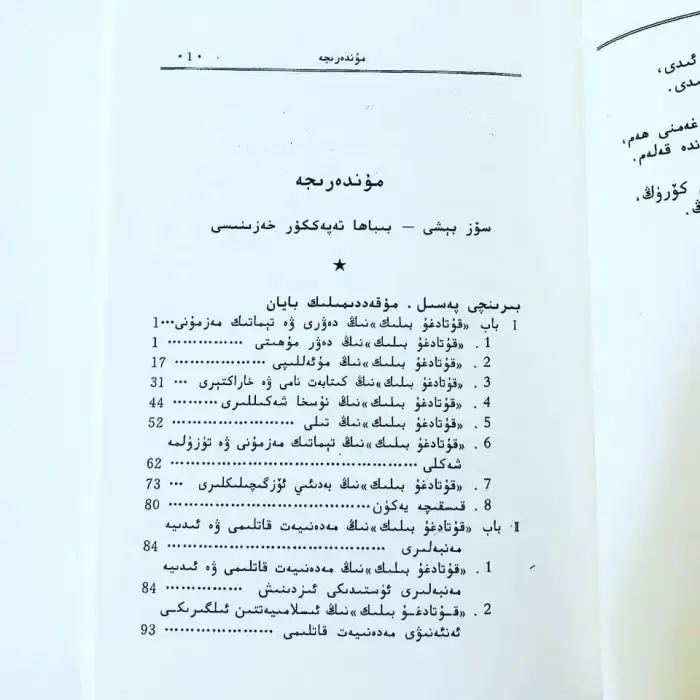 مۇندەرىجە
· 1 ·
مۇندەرىجە
سۆز بېشى — بىباھا تەپەككۇر خەزىنىسى
★
بىرىنچى پەسىل . مۇقەددىمىلىك بايان
I باب «قۇتادغۇ بىلىك»نىڭ دەۋرى ۋە تېماتىك مەزمۇنى···1
1 . «قۇتادغۇ بىلىك»نىڭ دەۋر مۇھىتى ··············· 1
2 . «قۇتادغۇ بىلىك»نىڭ مۇئەللىپى ··············· 17
3 . «قۇتادغۇ بىلىك»نىڭ كىتابەت نامى ۋە خاراكتېرى ··· 31
4 . «قۇتادغۇ بىلىك»نىڭ نۇسخا شەكىللىرى········· 44
5 . «قۇتادغۇ بىلىك»نىڭ تىلى ························ 52
6 . «قۇتادغۇ بىلىك»نىڭ تېماتىك مەزمۇنى ۋە تۈزۈلمە
شەكلى ················································ 62
7 . «قۇتادغۇ بىلىك»نىڭ بەدىئىي ئۆزگىچىلىكلىرى ··· 73
8 . قىسقىچە يەكۈن······································ 80
II باب «قۇتادغۇ بىلىك»نىڭ مەدەنىيەت قاتلىمى ۋە ئىدىيە
مەنبەلىرى ·········································· 84
1 . «قۇتادغۇ بىلىك»نىڭ مەدەنىيەت قاتلىمى ۋە ئىدىيە
مەنبەلىرى ئۈستىدىكى ئىزدىنىش ··············· 84
2 . «قۇتادغۇ بىلىك»نىڭ ئىسلامىيەتتىن ئىلگىرىكى
ئەنئەنىۋى مەدەنىيەت قاتلىمى ··············· 93
ئىدى،
غەمنى ھەم،
قەلەم.
كۆرۈڭ،